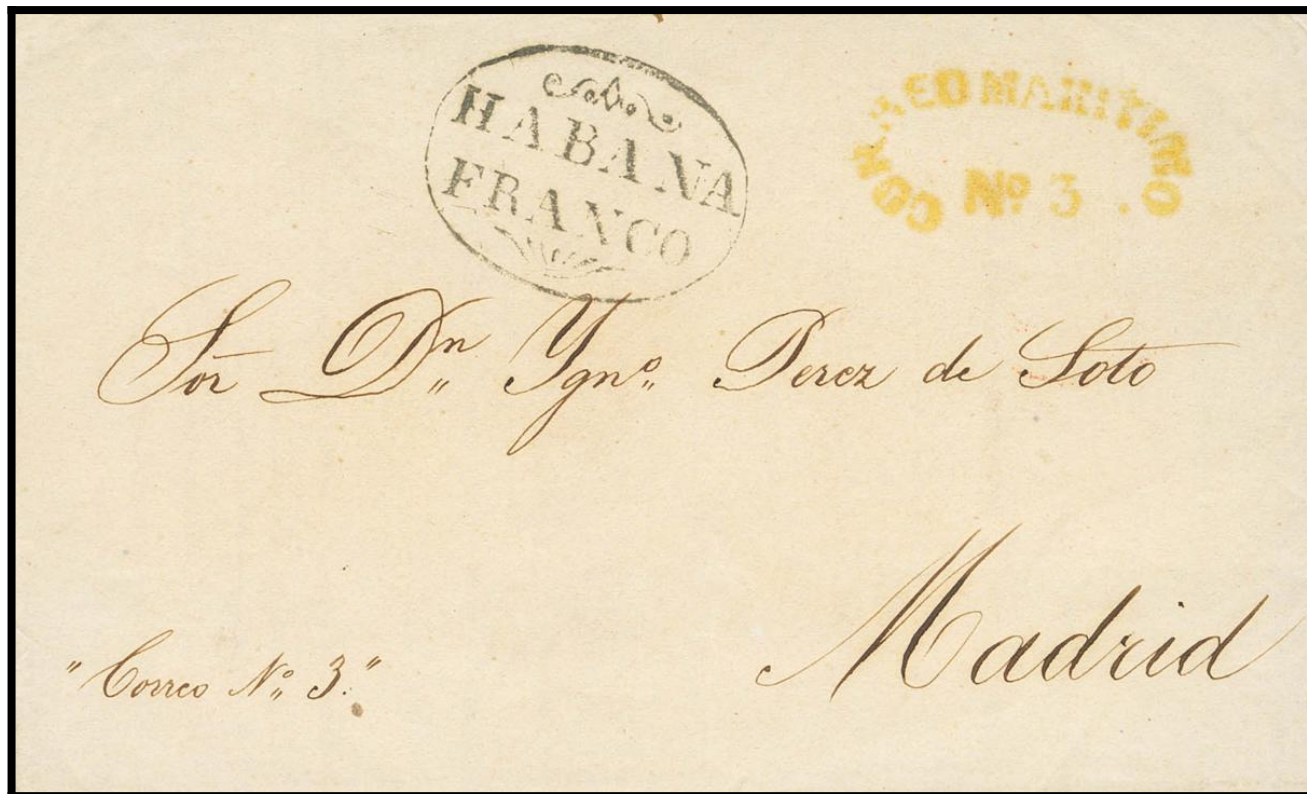 HABANA
FRANCO
CORREO MARITIMO
Nº 3.
Sōr Dn. Ygnº. Perez de Soto
Madrid
"Correo Nº. 3."